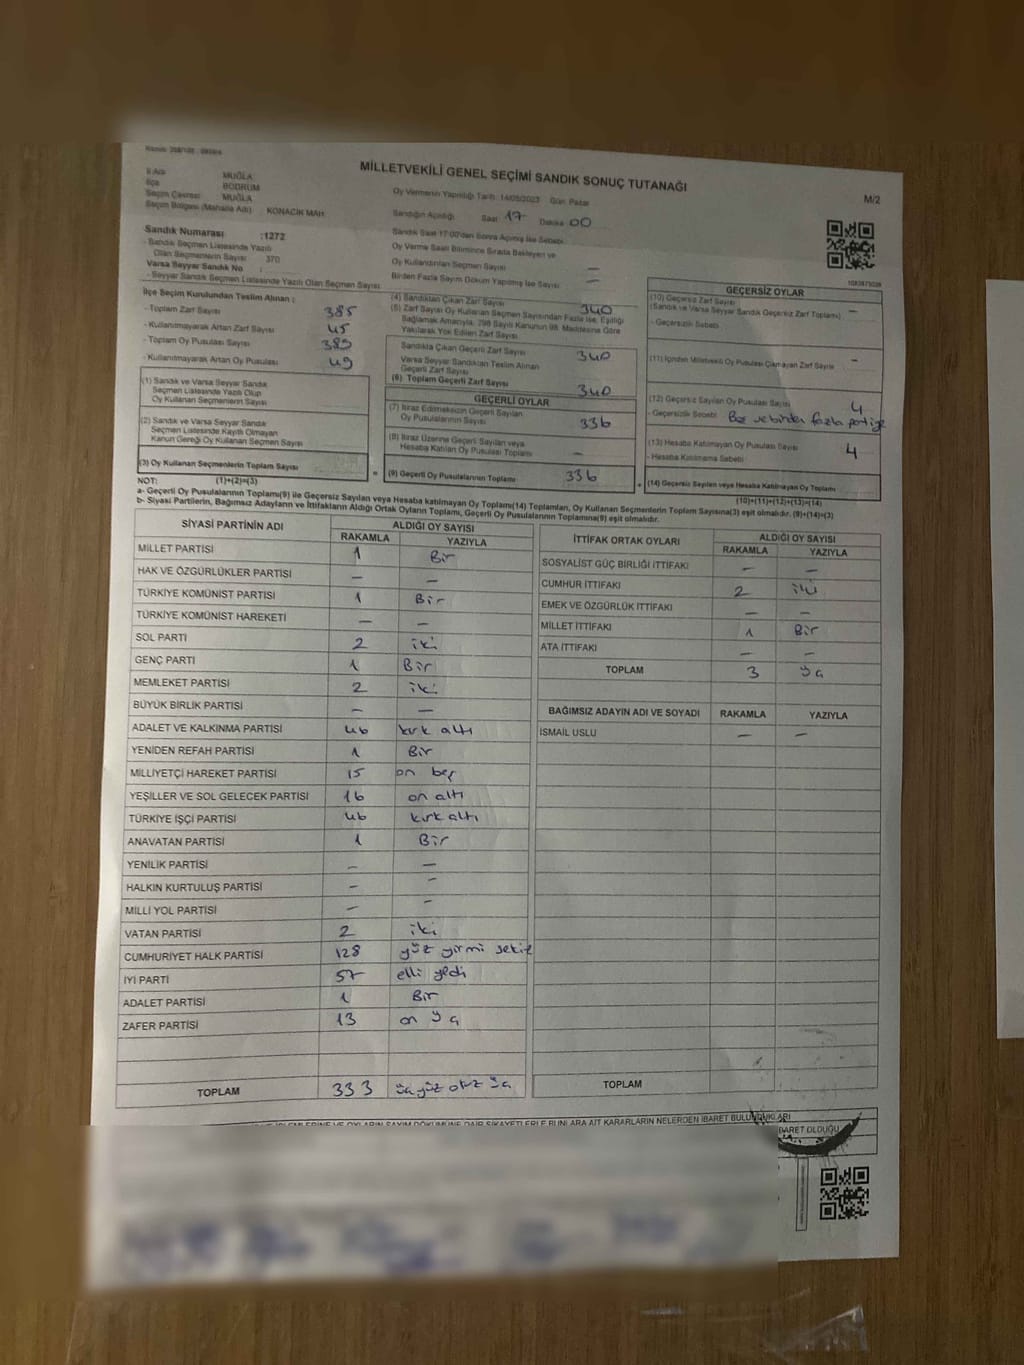 MİLLETVEKİLİ GENEL SEÇİMİ SANDIK SONUÇ TUTANAĞI
M/2
İli Adı MUĞLA
İlçe BODRUM
Seçim Çevresi MUĞLA
Seçim Bölgesi (Mahalle Adı) KONACIK MAH.
Oy Vermenin Yapıldığı Tarih: 14/05/2023 Gün: Pazar
Sandığın Açıldığı Saat 17 Dakika 00
Sandık Saat 17:00'den Sonra Açılmış İse Sebebi
Oy Verme Saati Bitiminde Sırada Bekleyen ve
Oy Kullandırılan Seçmen Sayısı —
Birden Fazla Sayım Döküm Yapılmış İse Sayısı —
Sandık Numarası :1272
- Sandık Seçmen Listesinde Yazılı
Olan Seçmenlerin Sayısı 370
Varsa Seyyar Sandık No :
- Seyyar Sandık Seçmen Listesinde Yazılı Olan Seçmen Sayısı
İlçe Seçim Kurulundan Teslim Alınan :
- Toplam Zarf Sayısı 385
- Kullanılmayarak Artan Zarf Sayısı 45
- Toplam Oy Pusulası Sayısı 389
- Kullanılmayarak Artan Oy Pusulası 49
(1) Sandık ve Varsa Seyyar Sandık
Seçmen Listesinde Yazılı Olup
Oy Kullanan Seçmen Sayısı
(2) Sandık ve Varsa Seyyar Sandık
Seçmen Listesinde Kayıtlı Olmayan
Kanun Gereği Oy Kullanan Seçmen Sayısı
(3) Oy Kullanan Seçmenlerin Toplam Sayısı
(1)+(2)=(3)
(4) Sandıktan Çıkan Zarf Sayısı 340
(5) Zarf Sayısı Oy Kullanan Seçmen Sayısından Fazla İse, Eşitliği
Sağlamak Amacıyla, 298 Sayılı Kanunun 98. Maddesine Göre
Yakılarak Yok Edilen Zarf Sayısı
Sandıkta Çıkan Geçerli Zarf Sayısı 340
Varsa Seyyar Sandıktan Teslim Alınan
Geçerli Zarf Sayısı
(6) Toplam Geçerli Zarf Sayısı 340
GEÇERLİ OYLAR
(7) İtiraz Edilmeksizin Geçerli Sayılan
Oy Pusulalarının Sayısı 336
(8) İtiraz Üzerine Geçerli Sayılan veya
Hesaba Katılan Oy Pusulası Toplamı —
= (9) Geçerli Oy Pusulalarının Toplamı 336 +
GEÇERSİZ OYLAR
(10) Geçersiz Zarf Sayısı —
(Sandık ve Varsa Seyyar Sandık Geçersiz Zarf Toplamı)
- Geçersizlik Sebebi
(11) İçinden Milletvekili Oy Pusulası Çıkmayan Zarf Sayısı —
(12) Geçersiz Sayılan Oy Pusulası Sayısı 4
- Geçersizlik Sebebi Boş ve birden fazla partiye
(13) Hesaba Katılmayan Oy Pusulası Sayısı 4
- Hesaba Katılmama Sebebi
(14) Geçersiz Sayılan veya Hesaba Katılmayan Oy Toplamı
(10)+(11)+(12)+(13)=(14)
NOT:
a- Geçerli Oy Pusulalarının Toplamı(9) ile Geçersiz Sayılan veya Hesaba katılmayan Oy Toplamı(14) Toplamları, Oy Kullanan Seçmenlerin Toplam Sayısına(3) eşit olmalıdır. (9)+(14)=(3)
b- Siyasi Partilerin, Bağımsız Adayların ve İttifakların Aldığı Ortak Oyların Toplamı, Geçerli Oy Pusulalarının Toplamına(9) eşit olmalıdır.
SİYASİ PARTİNİN ADI ALDIĞI OY SAYISI
RAKAMLA YAZIYLA
MİLLET PARTİSİ 1 Bir
HAK VE ÖZGÜRLÜKLER PARTİSİ — —
TÜRKİYE KOMÜNİST PARTİSİ 1 Bir
TÜRKİYE KOMÜNİST HAREKETİ — —
SOL PARTİ 2 iki
GENÇ PARTİ 1 Bir
MEMLEKET PARTİSİ 2 iki
BÜYÜK BİRLİK PARTİSİ — —
ADALET VE KALKINMA PARTİSİ 46 kırk altı
YENİDEN REFAH PARTİSİ 1 Bir
MİLLİYETÇİ HAREKET PARTİSİ 15 on beş
YEŞİLLER VE SOL GELECEK PARTİSİ 16 on altı
TÜRKİYE İŞÇİ PARTİSİ 46 kırk altı
ANAVATAN PARTİSİ 1 Bir
YENİLİK PARTİSİ — —
HALKIN KURTULUŞ PARTİSİ — —
MİLLİ YOL PARTİSİ — —
VATAN PARTİSİ 2 iki
CUMHURİYET HALK PARTİSİ 128 yüz yirmi sekiz
İYİ PARTİ 57 elli yedi
ADALET PARTİSİ 1 Bir
ZAFER PARTİSİ 13 on üç
TOPLAM 333 üçyüz otuz üç
İTTİFAK ORTAK OYLARI ALDIĞI OY SAYISI
RAKAMLA YAZIYLA
SOSYALİST GÜÇ BİRLİĞİ İTTİFAKI — —
CUMHUR İTTİFAKI 2 iki
EMEK VE ÖZGÜRLÜK İTTİFAKI — —
MİLLET İTTİFAKI 1 Bir
ATA İTTİFAKI — —
TOPLAM 3 üç
BAĞIMSIZ ADAYIN ADI VE SOYADI RAKAMLA YAZIYLA
İSMAİL USLU — —
TOPLAM
DÖKÜMÜNE DAİR ŞİKAYETLERLE BUNLARA AİT KARARLARIN NELERDEN İBARET BULUNDUKLARI
İBARET OLDUĞU